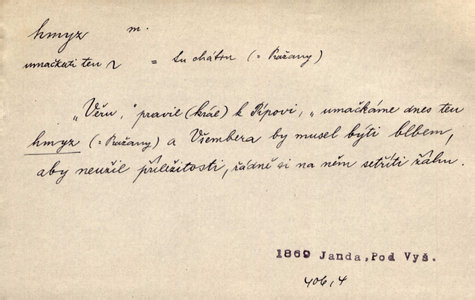 hmyz m.
umačkati ten ~ = tu chátru (= Pražany)
„Věru," pravil (král) k Pípovi, „umačkáme dnes ten
hmyz (= Pražany) a Všembera by musel býti blbem,
aby neužil příležitosti, řádně si na něm setříti žáhu.
1869 Janda, Pod Vyš.
406, 4